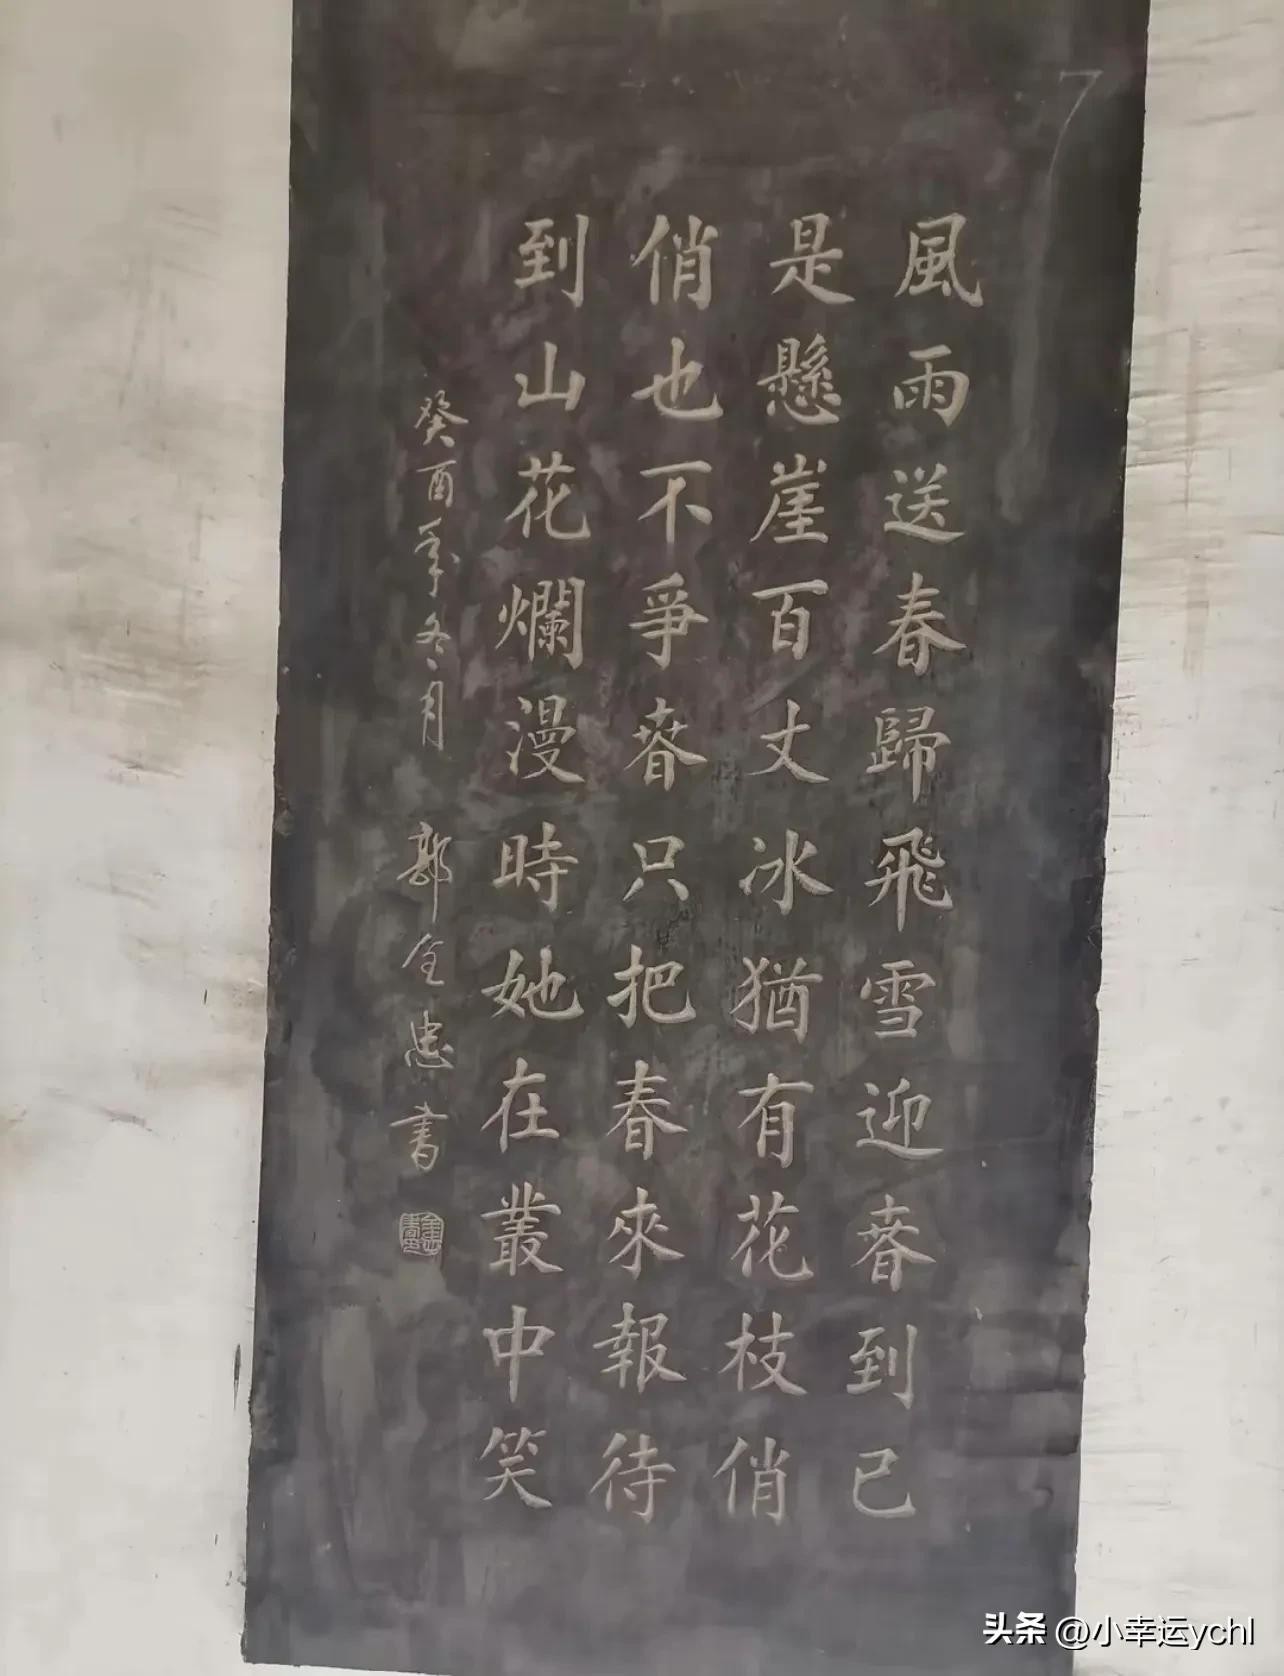 風雨送春歸飛雪迎春到已
是懸崖百丈冰猶有花枝俏
俏也不爭春只把春來報待
到山花爛漫時她在叢中笑
癸酉年冬月 郭全忠書
头条 @小幸运ychl